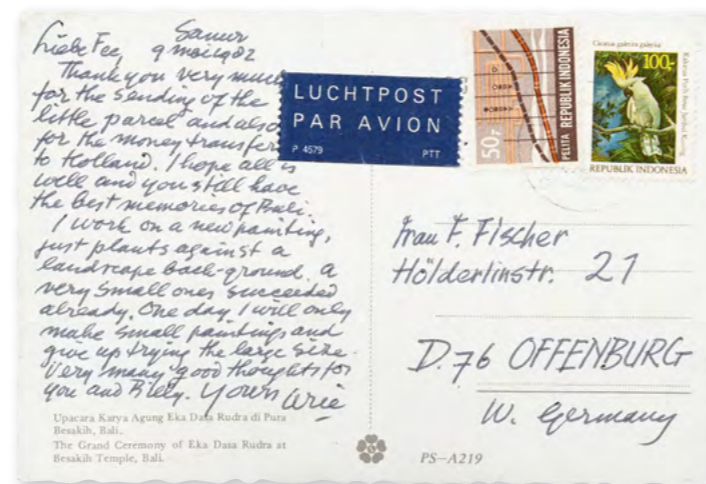 Sanur
Liebe Fee, 9 maic 1982
Thank you very much
for the sending of the
little parcel and also
for the money transfer
to Holland. I hope all is
well and you still have
the best memories of Bali.
I work on a new painting,
just plants against a
landscape back-ground. a
very small ones succeeded
already. One day I will only
make small paintings and
give up trying the large size.
Very many good thoughts for
you and Billy. Yours Arie
Upacara Karya Agung Eka Dasa Rudra di Pura
Besakih, Bali.
The Grand Ceremony of Eka Dasa Rudra at
Besakih Temple, Bali.
LUCHTPOST
PAR AVION
P 4579 PTT
50r
PELITA REPUBLIK INDONESIA
Cacatua galerita galerita
100,-
REPUBLIK INDONESIA
Frau F. Fischer
Hölderlinstr. 21
D.76 OFFENBURG
W. Germany
PS-A219